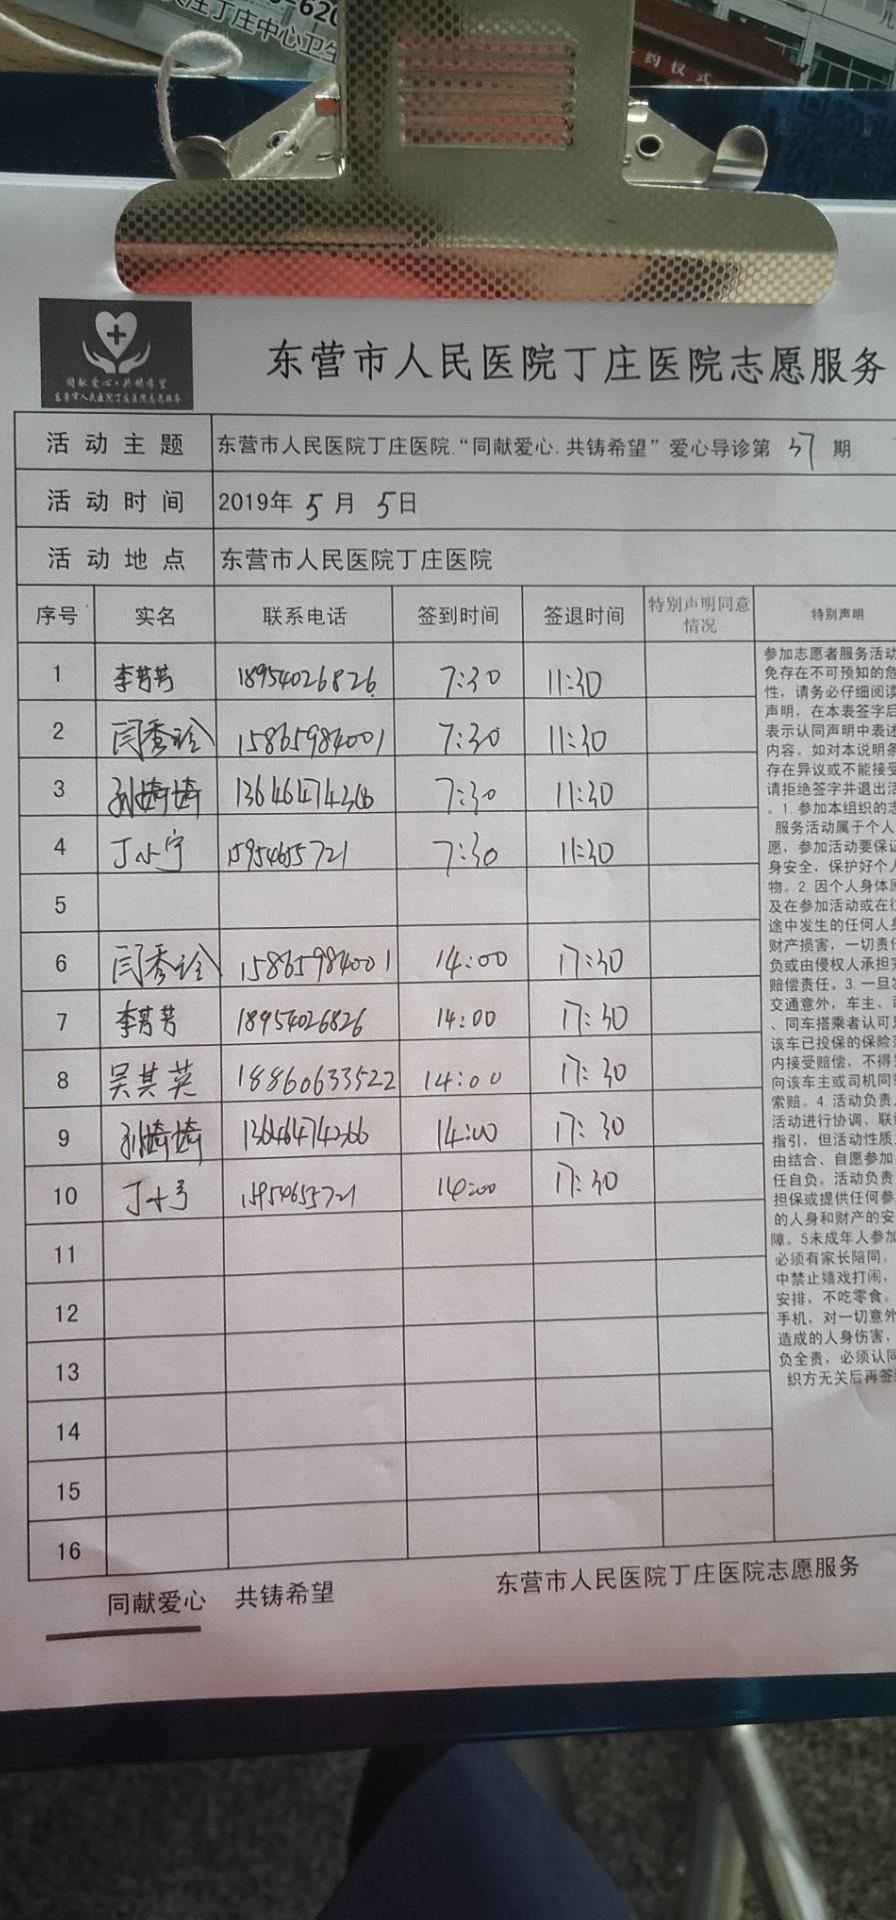 关注丁庄中心卫生
约仪式
同献爱心·共铸希望
东营市人民医院丁庄医院志愿服务
东营市人民医院丁庄医院志愿服务
活动主题 东营市人民医院丁庄医院.“同献爱心.共铸希望”爱心导诊第 37 期
活动时间 2019年 5 月 5日
活动地点 东营市人民医院丁庄医院
序号 实名 联系电话 签到时间 签退时间 特别声明同意情况 特别声明
1 李芳芳 18954026826 7:30 11:30
2 闫秀玲 15865984001 7:30 11:30
3 孙婷婷 7:30 11:30
4 丁小宁 15954655721 7:30 11:30
5
6 闫秀玲 15865984001 14:00 17:30
7 李芳芳 18954026826 14:00 17:30
8 吴其英 18860633522 14:00 17:30
9 孙婷婷 14:00 17:30
10 丁小宁 15954655721 14:00 17:30
11
12
13
14
15
16
参加志愿者服务活动
免存在不可预知的危
性，请务必仔细阅读
声明，在本表签字后
表示认同声明中表述
内容。如对本说明条
存在异议或不能接受
请拒绝签字并退出活
。1.参加本组织的志
服务活动属于个人
愿，参加活动要保证
身安全，保护好个人
物。2.因个人身体原
及在参加活动或在往
途中发生的任何人身
财产损害，一切责任
负或由侵权人承担完
赔偿责任。3.一旦发
交通意外，车主、司
、同车搭乘者认可只
该车已投保的保险范
内接受赔偿，不得另
向该车主或司机同等
索赔。4.活动负责
活动进行协调、联络
指引，但活动性质
由结合、自愿参加
任自负。活动负责
担保或提供任何参
的人身和财产的安
障。5未成年人参加
必须有家长陪同。
中禁止嬉戏打闹，
安排，不吃零食。
手机，对一切意外
造成的人身伤害，
负全责，必须认同
织方无关后再签
同献爱心 共铸希望
东营市人民医院丁庄医院志愿服务